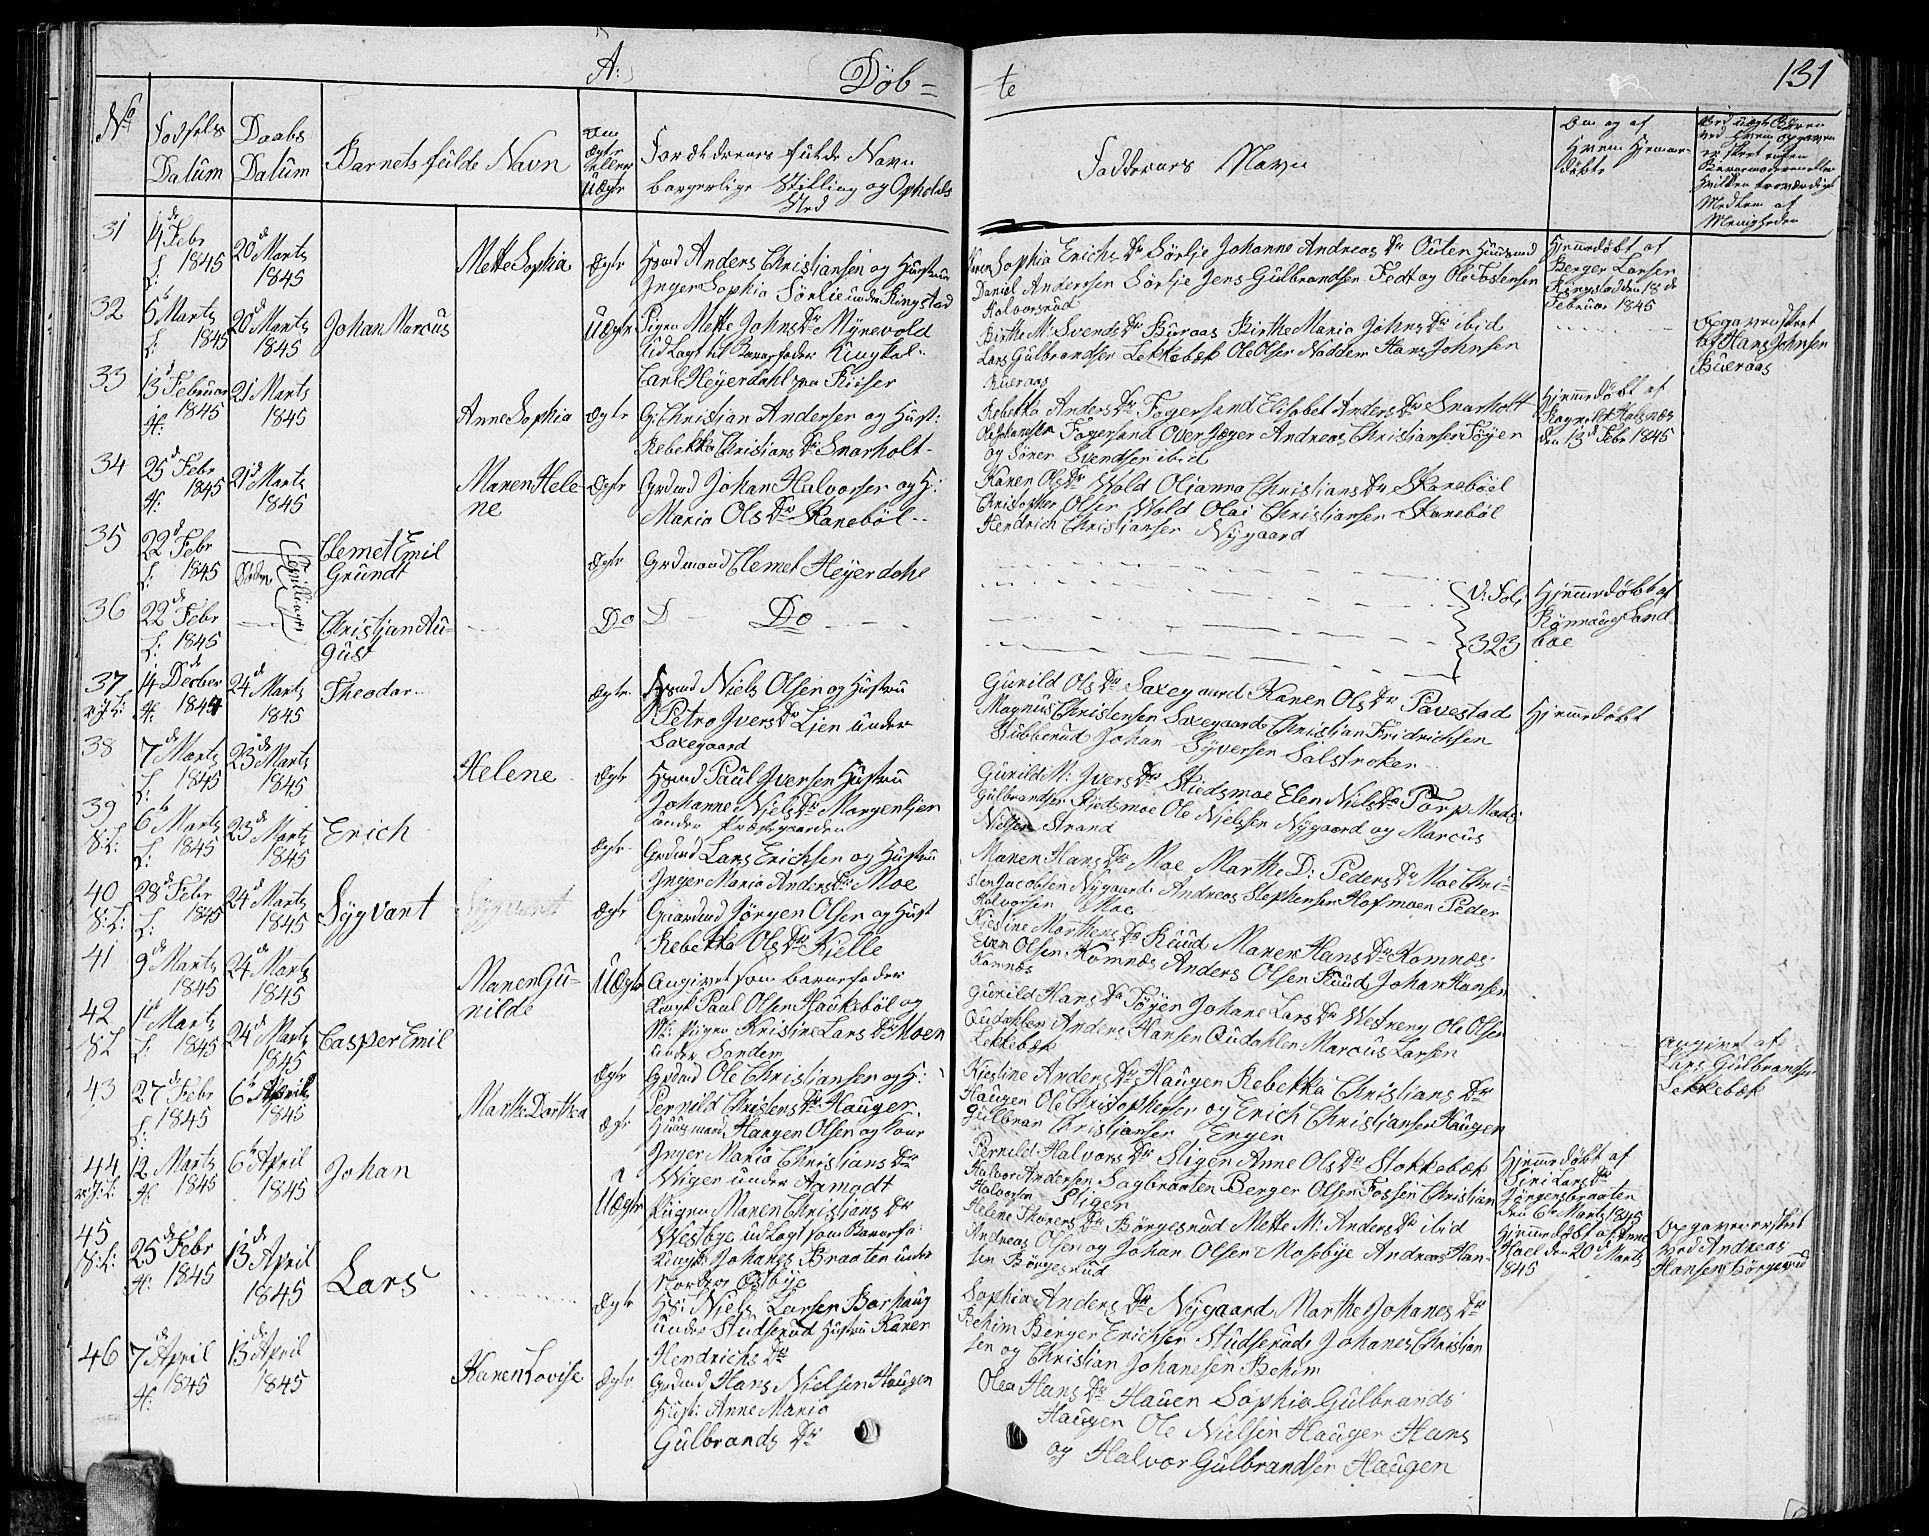 A:
Döb=
te
131
No
Fødsels
Datum
Daabs
Datum
Barnets fulde Navn
Om
Ægte
eller
Uægte
Forældrenes fulde Navn
borgerlige Stilling og Opholds
Sted
Faddernes Navn
Om og af
Hvem Hjemme-
døbte
31
14de Febr
1845
20de Marts
1845
Mette Sophia
Ægte
Hsmd Anders Christjansen og Hustrue
Inger Sophia Sørlie under Ringstad
Maren Sophia Erichs Dr Sörlje Johanne Andreas Dr Outen Huusmd
Daniel Andersen Sörlje Jens Gulbrandsen Fedt og Ole Tostensen
Halvorsrud
Hjemmedöbt af
Berger Larsen
Ringstad den 18de
Februar 1845
32
6te Marts
1845
20de Marts
1845
Johan Marcus
Uægte
Pigen Mette Johns Dr Myrevold
Udlagt til Barnefader Ungkel.
Carl Heyerdahl paa Riiser
Birthe M. Svends Dr Bueraas Birthe Maria Johns Dr ibid
Lars Gulbrandsen Lekkebæk Ole Olsen Nodden Hans Johnsen
Bueraas
Opgaven skeet
af Hans Johnsen
Bueraas
33
13de Februar
1845
21 Marts
1845
Anne Sophia
Ægte
G: Christjan Andersen og Hust:
Rebekka Christians Dr Snarholt
Rebekka Anders Dr Fagersand Elisabet Anders Dr Snarholt
Ole Johannesen Fagersand Over Jæger Andreas Christjansen Töyen
og Sören Svendsen ibid
Hjemmedöbt af
den 13de Febr 1845
34
25de Febr
1845
21de Marts
1845
Maren Hele
ne
Ægte
Grdmd Johan Halvorsen og H:
Maria Ols Dr Skaneböl
Karen Ols Dr Wold Oljanna Christjans Dr Skaneböl
Christopher Olsen Wold Olai Christjansen Skaneböl
Hendrich Christjansen Nygaard
35
22de Febr
1845
Clemet Emil
Grundt
Tvillinger
Ægte
Grdmand Clemet Heyerdahl
36
22de Febr
1845
Christjan Au-
gust
Do
D
Do
V: Fol:
323
Hjemmedöbt af
Rönnaug Sand
boe
37
14de Decber
1844
24de Marts
1845
Theodor
Ægte
Hsmd Niels Olsen og Hustrue
Petro Ivers Dr Ljen under
Saxegaard
Gunild Ols Dr Saxegaard Karen Ols Dr Pavestad
Magnus Christensen Saxegaard Christian Fridrichsen
Stubberud Johan Syversen Solstroken
Hjemmedöbt
38
7de Marts
1845
23de Marts
1845
Helene
Ægte
Hsmd Paul Iversen Hustrue
Johanne Niels Dr Morgenljen
under Præstegaarden
Gunild M: Ivers Dr Skiedsmoe Elen Niels Dr Torp Mads
Gulbrandsen Skiedsmoe Ole Nielsen Nygaard og Marcus
Nielsen Strand
39
6te Marts
1845
23de Marts
1845
Erich
Ægte
Grdmd Lars Erichsen og Hustrue
Inger Maria Anders Dr Moe
Maren Hans Dr Moe Marthe D: Peders Dr Moe Chri-
sten Jacobsen Nygaard Andreas Stephensen Hofmoen Peder
Halvorsen Moe
40
28de Febr
1845
24de Marts
1845
Sygvart
Ægte
Gaardmd Jörgen Olsen og Hust
Rebekka Ols Dr Kjelle
Kjestine Marthens Dr Ruud Maren Hans Dr Komnæs
Even Olsen Komnæs Anders Olsen Ruud Johan Hansen
Komnæs
41
9de Marts
1845
24de Marts
1845
Maren Gu-
nilde
Uægte
Angivet som barnefader
Ungk Paul Olsen Haukeböl og
M: Pigen Kristine Lars Dr Moen
under Sandem
Gunild Hans Dr Töyen Johane Lars Dr Westreng Ole Olsen
Qudahlen Anders Hansen Qudahlen Marcus Larsen
Lekkebæk
Angivet af
Lars Gulbrandsen
Lekkebæk
42
1ste Marts
1845
24de Marts
1845
Casper Emil
Ægte
Grdmd Ole Christjansen og H:
Pernild Christens Dr Haugen
Kjestine Anders Dr Haugen Rebekka Christians Dr
Haugen Ole Christophersen og Erich Christjansen Haugen
Gulbran Christjansen Engen
43
27de Febr
1845
6te April
1845
Marthe Dorthea
Ægte
Huusmand Haagen Olsen og Kone
Inger Maria Christians Dr
Wigen under Aamodt
Pernild Halvors Dr Stigen Anne Ols Dr Stokkebæk
Halvor Andersen Sagbraaten Berger Olsen Fossen Christian
Halvorsen Stigen
Hjemmedöbt af
Siri Lars Dr
Jörgensbraaten
den 6te Marts 1845
44
12 Marts
1845
6te April
1845
Johan
Uægte
Pigen Maren Christians Dr
Westbye udlagt som Barnefa:
Ungk: Johanes Braaten under
Nordre Østbye
Helene Thorers Dr Börgesrud Mette M: Anders Dr ibid
Andreas Olsen og Johan Olsen Mosebye Andreas Han-
sen Börgesrud
Hjemmedöbt af Anne
Hoel den 20de Marts
1845
Opgaven er skeet
ved Andreas
Hansen Börgesrud
45
25de Febr
1845
13de April
1845
Lars
Ægte
Hs: Niels Larsen Borhaug
under Studserud Hustru Karen
Hendrichs Dr
Sophia Anders Dr Nygaard Marthe Johanes Dr
Behim Berger Erichsen Studserud Johanes Christian
sen og Christian Johanesen Behim
46
7de April
1845
13de April
1845
Karen Lovise
Ægte
Grdmd Hans Nielsen Haugen
Hust: Anne Maria
Gulbrands Dr
Olea Hans Dr Hauen Sophia Gulbrands
Haugen Ole Nielsen Haugen Hans
og Halvor Gulbrandsen Haugen